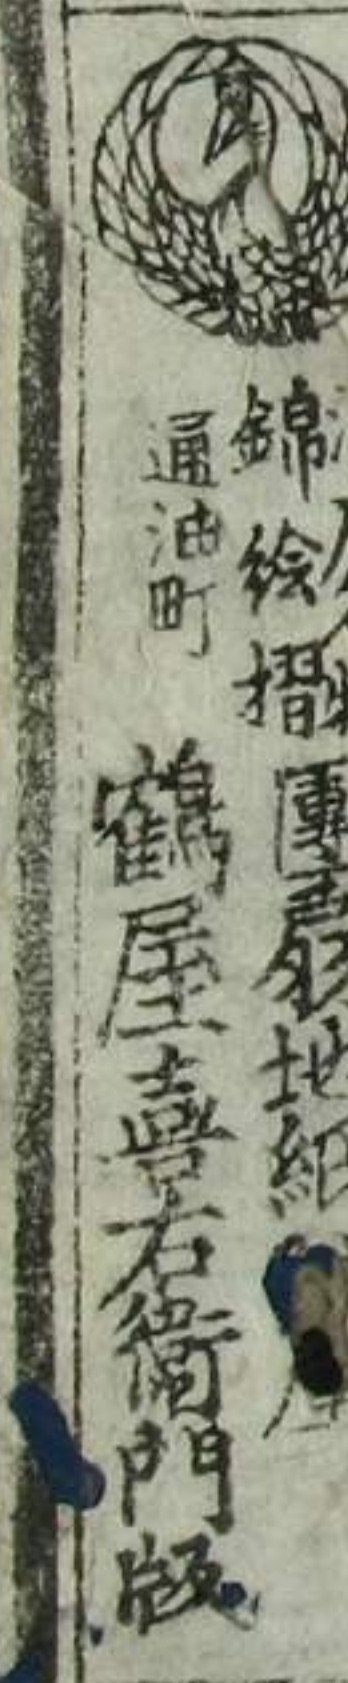 錦絵摺團扇地紙
通油町
鶴屋喜右衛門版